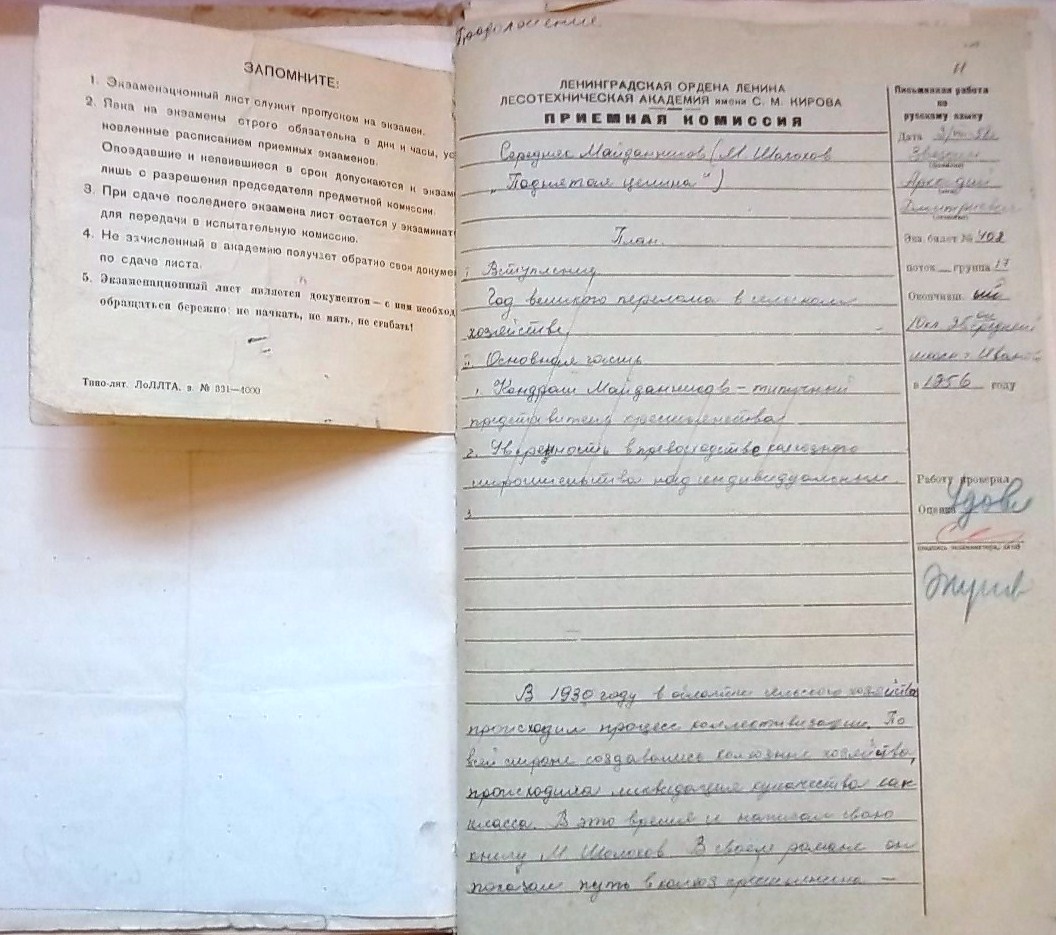 ЗАПОМНИТЕ:
1. Экзаменационный лист служит пропуском на экзамен.
2. Явка на экзамены строго обязательна в дни и часы, ус
новленные расписанием приемных экзаменов.
Опоздавшие и неявившиеся в срок допускаются к экзам
лишь с разрешения председателя предметной комиссии.
3. При сдаче последнего экзамена лист остается у экзаминат
для передачи в испытательную комиссию.
4. Не зачисленный в академию получает обратно свои докумен
по сдаче листа.
5. Экзаменационный лист является документом — с ним необход
обращаться бережно: не пачкать, не мять, не сгибать!
Типо-лит. ЛоЛЛТА. з. № 331—4000
Продолжение
11
ЛЕНИНГРАДСКАЯ ОРДЕНА ЛЕНИНА
ЛЕСОТЕХНИЧЕСКАЯ АКАДЕМИЯ имени С. М. КИРОВА
ПРИЕМНАЯ КОМИССИЯ
Середняк Майданников (М. Шолохов
„Поднятая целина")
План.
I Вступление
Год великого перелома в сельском
хозяйстве.
II Основная часть
1. Кондрат Майданников – типичный
представитель крестьянства
2. Уверенность в превосходстве колхозного
строительства над индивидуальным.
3
В 1930 году в области сельского хозяйства
происходил процесс коллективизации. По
всей стране создавались колхозные хозяйства,
происходила ликвидация кулачества как
класса. В это время и написал свою
книгу М Шолохов В своем романе он
показал путь в колхоз крестьянина –
Письменная работа
по
русскому языку
Дата
Аркадий
Дмитриевич
Экз. билет № 402
поток группа 17
Окончивш.
10 кл. средней
школ г Иваново
в 1956 году
Работу проверил
Оценка Удовл
(подпись экзаменатора, дата)